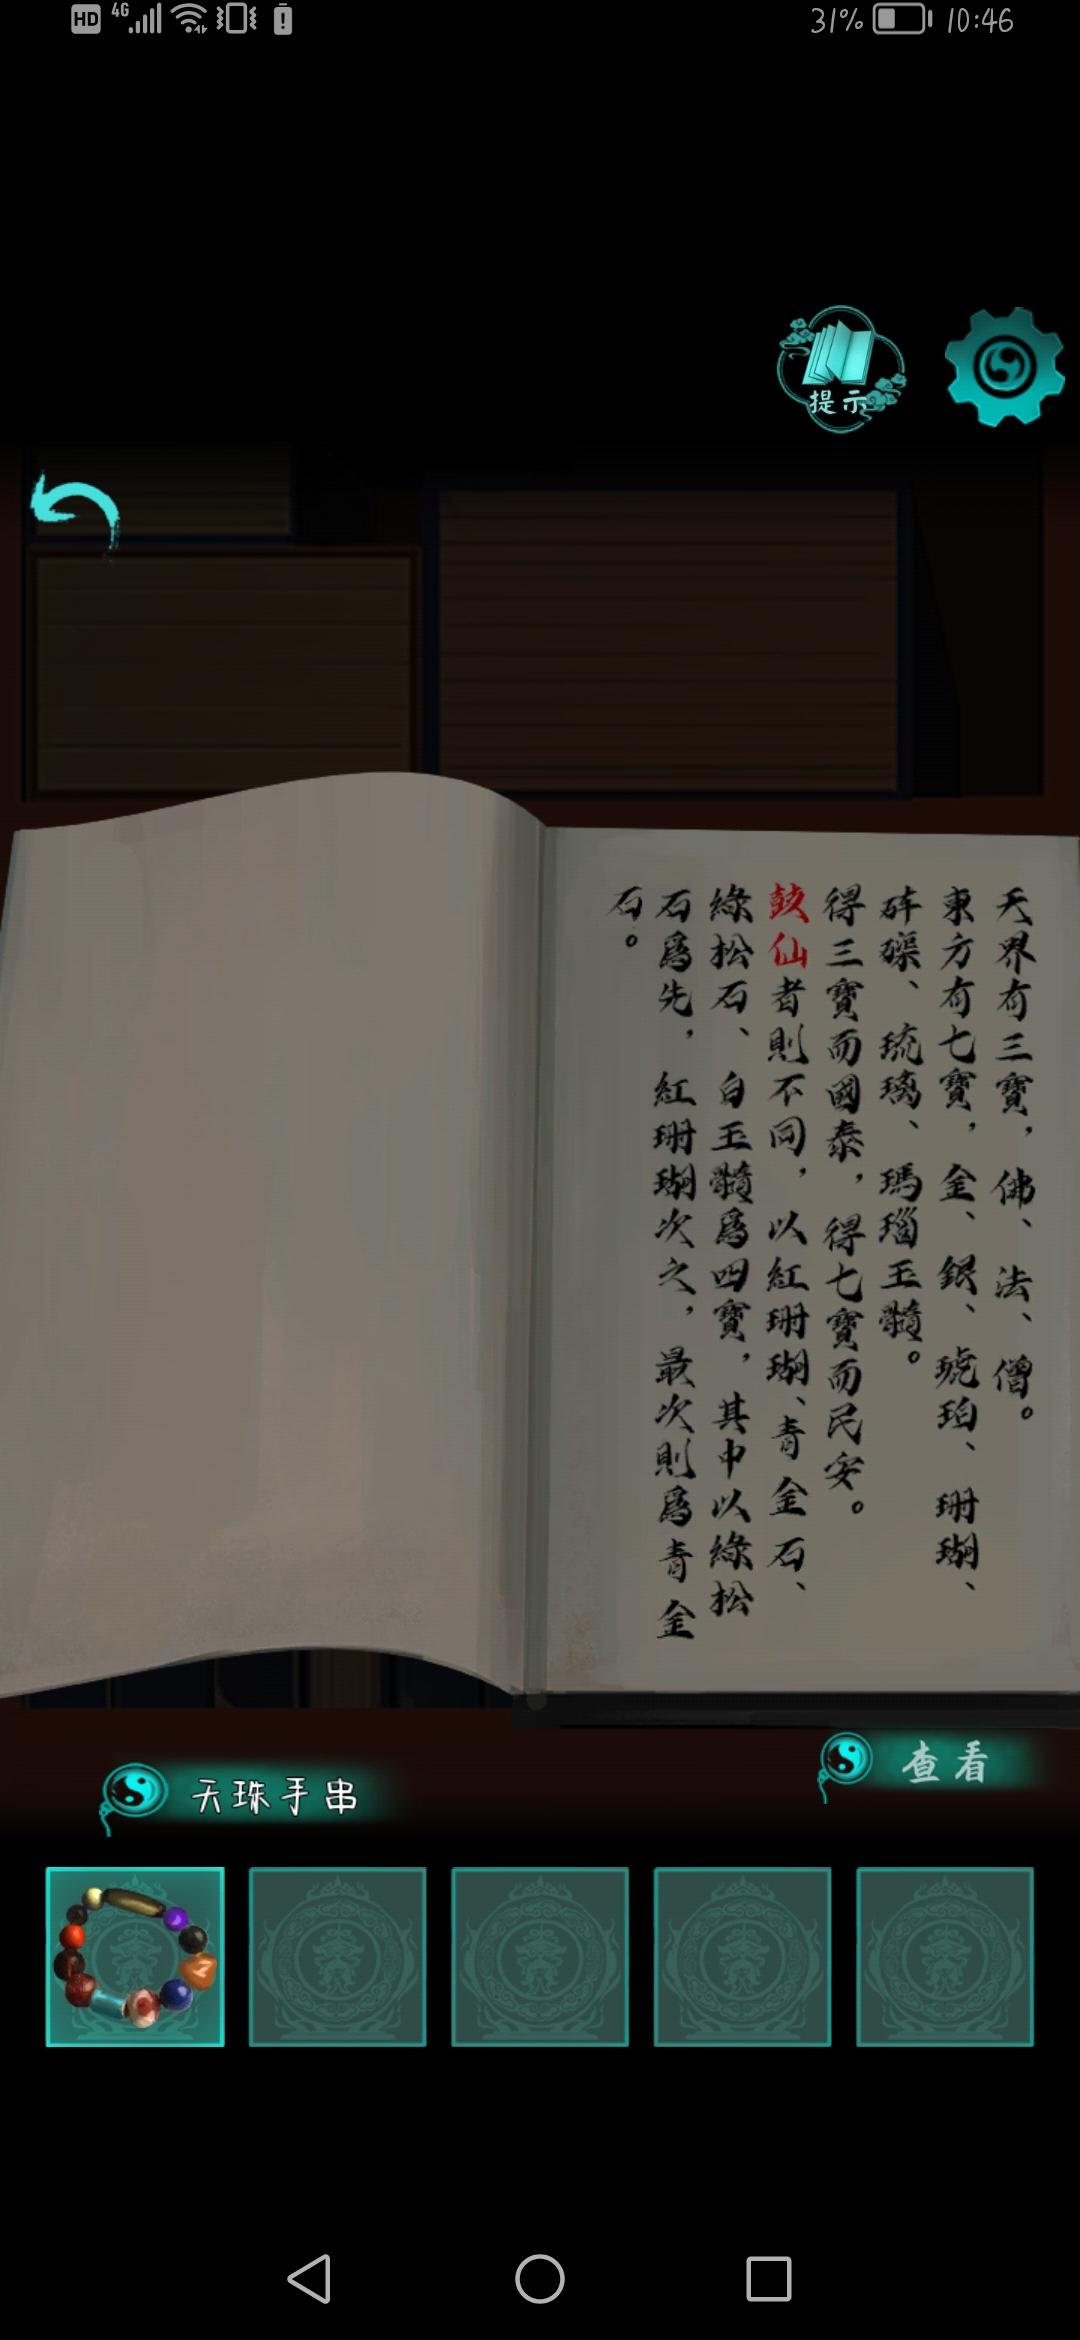 HD 4G 31% 10:46
提示
天界有三寶，佛、法、僧。
東方有七寶，金、銀、琥珀、珊瑚、
砗磲、琉璃、瑪瑙玉髓。
得三寶而國泰，得七寶而民安。
鼓仙者則不同，以紅珊瑚、青金石、
綠松石、白玉髓爲四寶，其中以綠松
石爲先，紅珊瑚次之，最次則爲青金
石。
天珠手串
查看